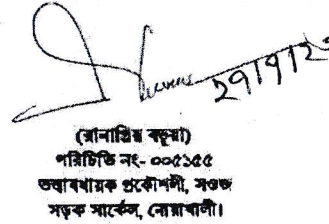 ২৭/৭/২
(রানাপ্রিয় বড়ুয়া)
পরিচিতি নং- ০০৫১৫৫
তত্ত্বাবধায়ক প্রকৌশলী, সওজ
সড়ক সার্কেল, নোয়াখালী।